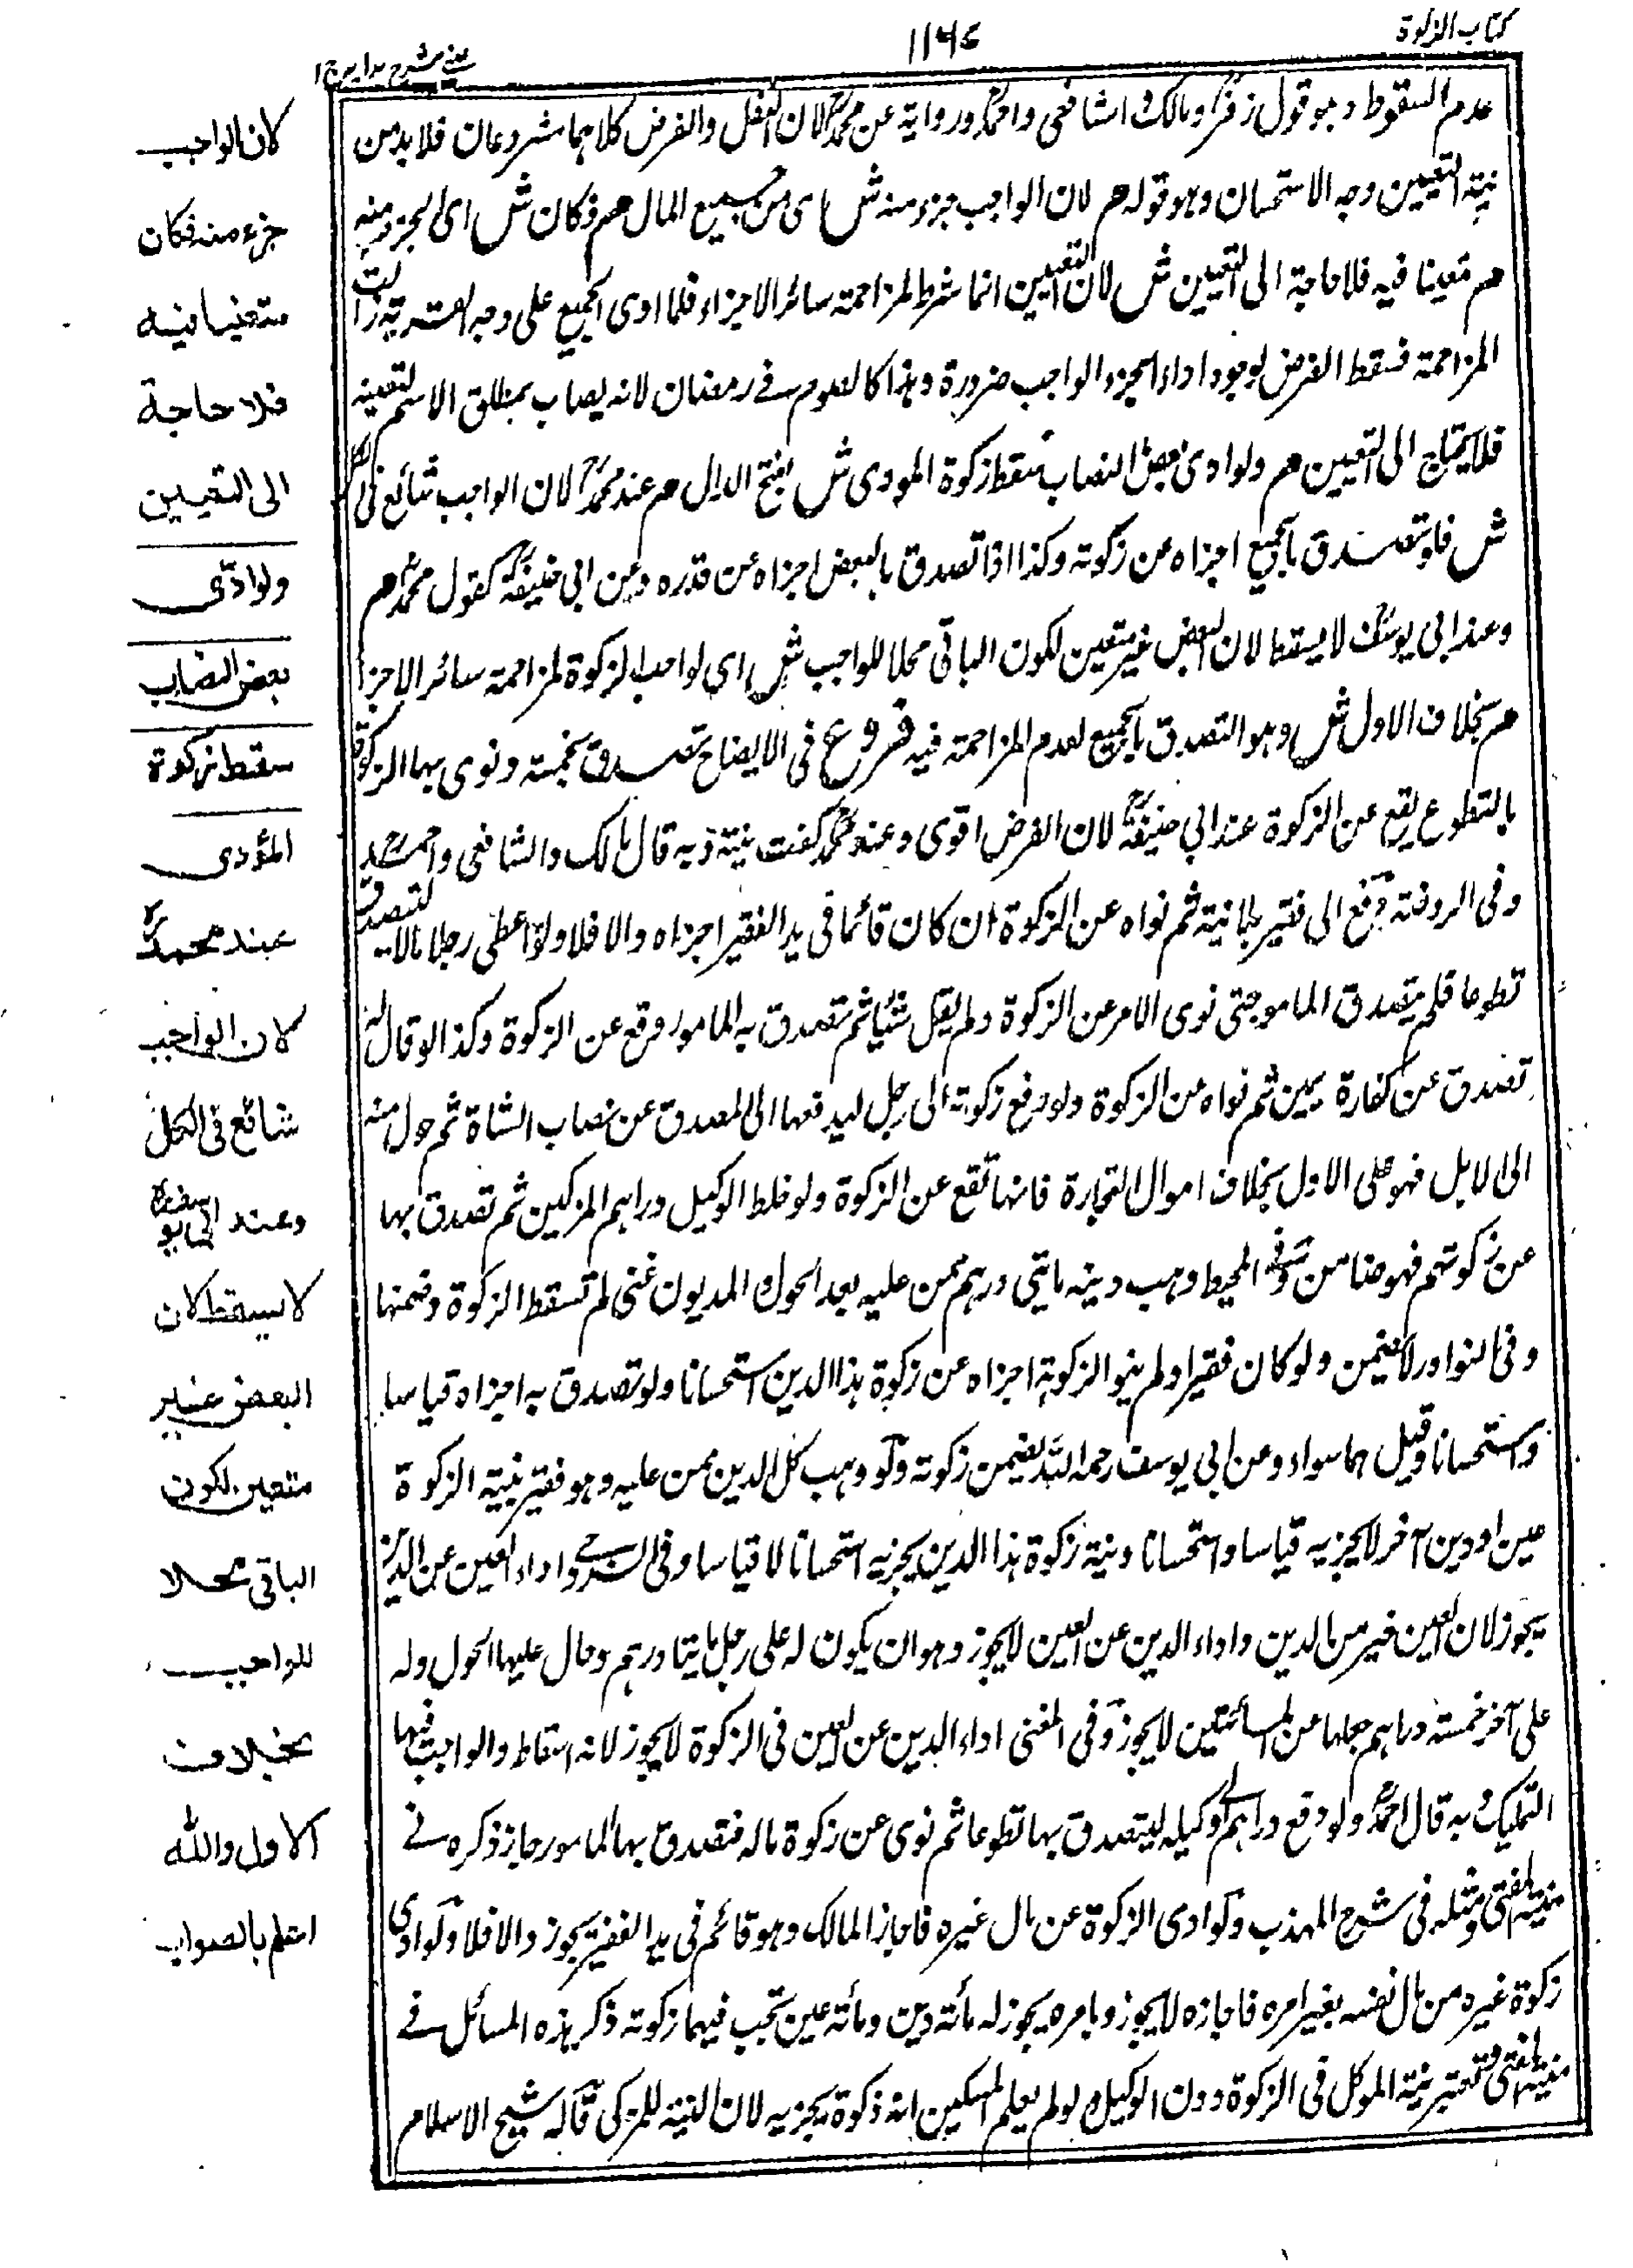 كتاب الزكوة
١١٦٧
عينى شرح هدايه ج١
عدم السقوط وهو قول زفر ومالك والشافعى واحمد ورواية عن محمد لان النفل والفرض كلاهما مشروعان فلا بد من
نية التعيين وجه الاستحسان وهو قوله هم لان الواجب جزء منه ش اى من جميع المال هم فكان ش اى الجزء منه
هم متعينا فيه فلا حاجة الى التعيين ش لان التعيين انما شرط لمزاحمة سائر الاجزاء فلما ادى الجميع على وجه القربة زالت
المزاحمة فسقط الفرض لوجود اداء الجزء الواجب ضرورة وهذا كالصوم فى رمضان لانه يصاب بمطلق الاسم لتعينه
فلا يحتاج الى التعيين هم ولو ادى بعض النصاب سقط زكوة المودى ش بفتح الدال هم عند محمد لان الواجب شائع فى الكل
ش فلو تصدق بالجميع اجزاه عن زكوته وكذا اذا تصدق بالبعض اجزاه عن قدره وعن ابى حنيفة كقول محمد هم
وعند ابى يوسف لا يسقط لان البعض غير متعين لكون الباقى محلا للواجب ش اى لواجب الزكوة لمزاحمة سائر الاجزا
هم بخلاف الاول ش وهو التصدق بالجميع لعدم المزاحمة فيه فروع فى الايضاح تصدق بخمسة ونوى بها الزكوة
بالتطوع يقع عن الزكوة عند ابى حنيفة لان الفرض اقوى وعند محمد لغت نيته وبه قال مالك والشافعى واحمد
وفى الروضة دفع الى فقير بلا نية ثم نواه عن الزكوة ان كان قائما فى يد الفقير اجزاه والا فلا ولو اعطى رجلا مالا ليتصدق
تطوعا فلم يتصدق المامور حتى نوى الامر عن الزكوة ولم يقل شيئا ثم تصدق به المامور وقع عن الزكوة وكذا لو قال
تصدق عن كفارة يمين ثم نواه عن الزكوة ولو دفع زكوته الى رجل ليدفعها الى المصدق عن نصاب الشاة ثم حول منه
الى الابل فهو على الاول بخلاف اموال التجارة فانها تقع عن الزكوة ولو خلط الوكيل دراهم المزكين ثم تصدق بها
عن زكوتهم فهو ضامن وفى المحيط وهب دينه مايتى درهم ممن عليه بعد الحول والمديون غنى لم تسقط الزكوة وضمنها
وفى النوادر لا يضمن ولو كان فقيرا ولم ينو الزكوة اجزاه عن زكوة هذا الدين استحسانا ولو تصدق به اجزاه قياسا
واستحسانا وقيل هما سواء وعن ابى يوسف رحمه الله يضمن زكوته ولو وهب كل الدين ممن عليه وهو فقير بنية الزكوة
عين او دين آخر لا يجزيه قياسا واستحسانا ونية زكوة هذا الدين يجزيه استحسانا لا قياسا وفى اداء العين عن الدين
يجوز لان العين خير من الدين واداء الدين عن العين لا يجوز وهو ان يكون له على رجل مايتا درهم وحال عليها الحول وله
على آخر خمسة دراهم جعلها عن المايتين لا يجوز وفى المغنى اداء الدين عن العين فى الزكوة لا يجوز لانه اسقاط والواجب فيها
التمليك وبه قال احمد ولو دفع دراهم لوكيله ليتصدق بها تطوعا ثم نوى عن زكوة ماله فتصدق بها المامور جاز ذكره فى
منية المفتى ومثله فى شرح المهذب ولو ادى الزكوة عن مال غيره فاجاز المالك وهو قائم فى يد الفقير يجوز والا فلا ولو ادى
زكوة غيره من مال نفسه بغير امره فاجازه لا يجوز وبامره يجوز له مأته دين ومأته عين تجب فيهما زكوته ذكر هذه المسائل فى
منية المفتى وتعتبر نية الموكل فى الزكوة دون الوكيل ولو لم يعلم المسكين انه زكوة يجزيه لان النية للمزكى قاله شيخ الاسلام
كان الواجب
جزء منه فكان
متعينا فيه
فلا حاجة
الى التعيين
ولو ادّى
بعض النصاب
سقط زكوة
المؤدى
عند محمدؒ
لان الواجب
شائع فى الكل
وعند ابى يوسف
لا يسقط لان
البعض غير
متعين لكون
الباقى محلا
للواجب
بخلاف
الاول والله
اعلم بالصواب